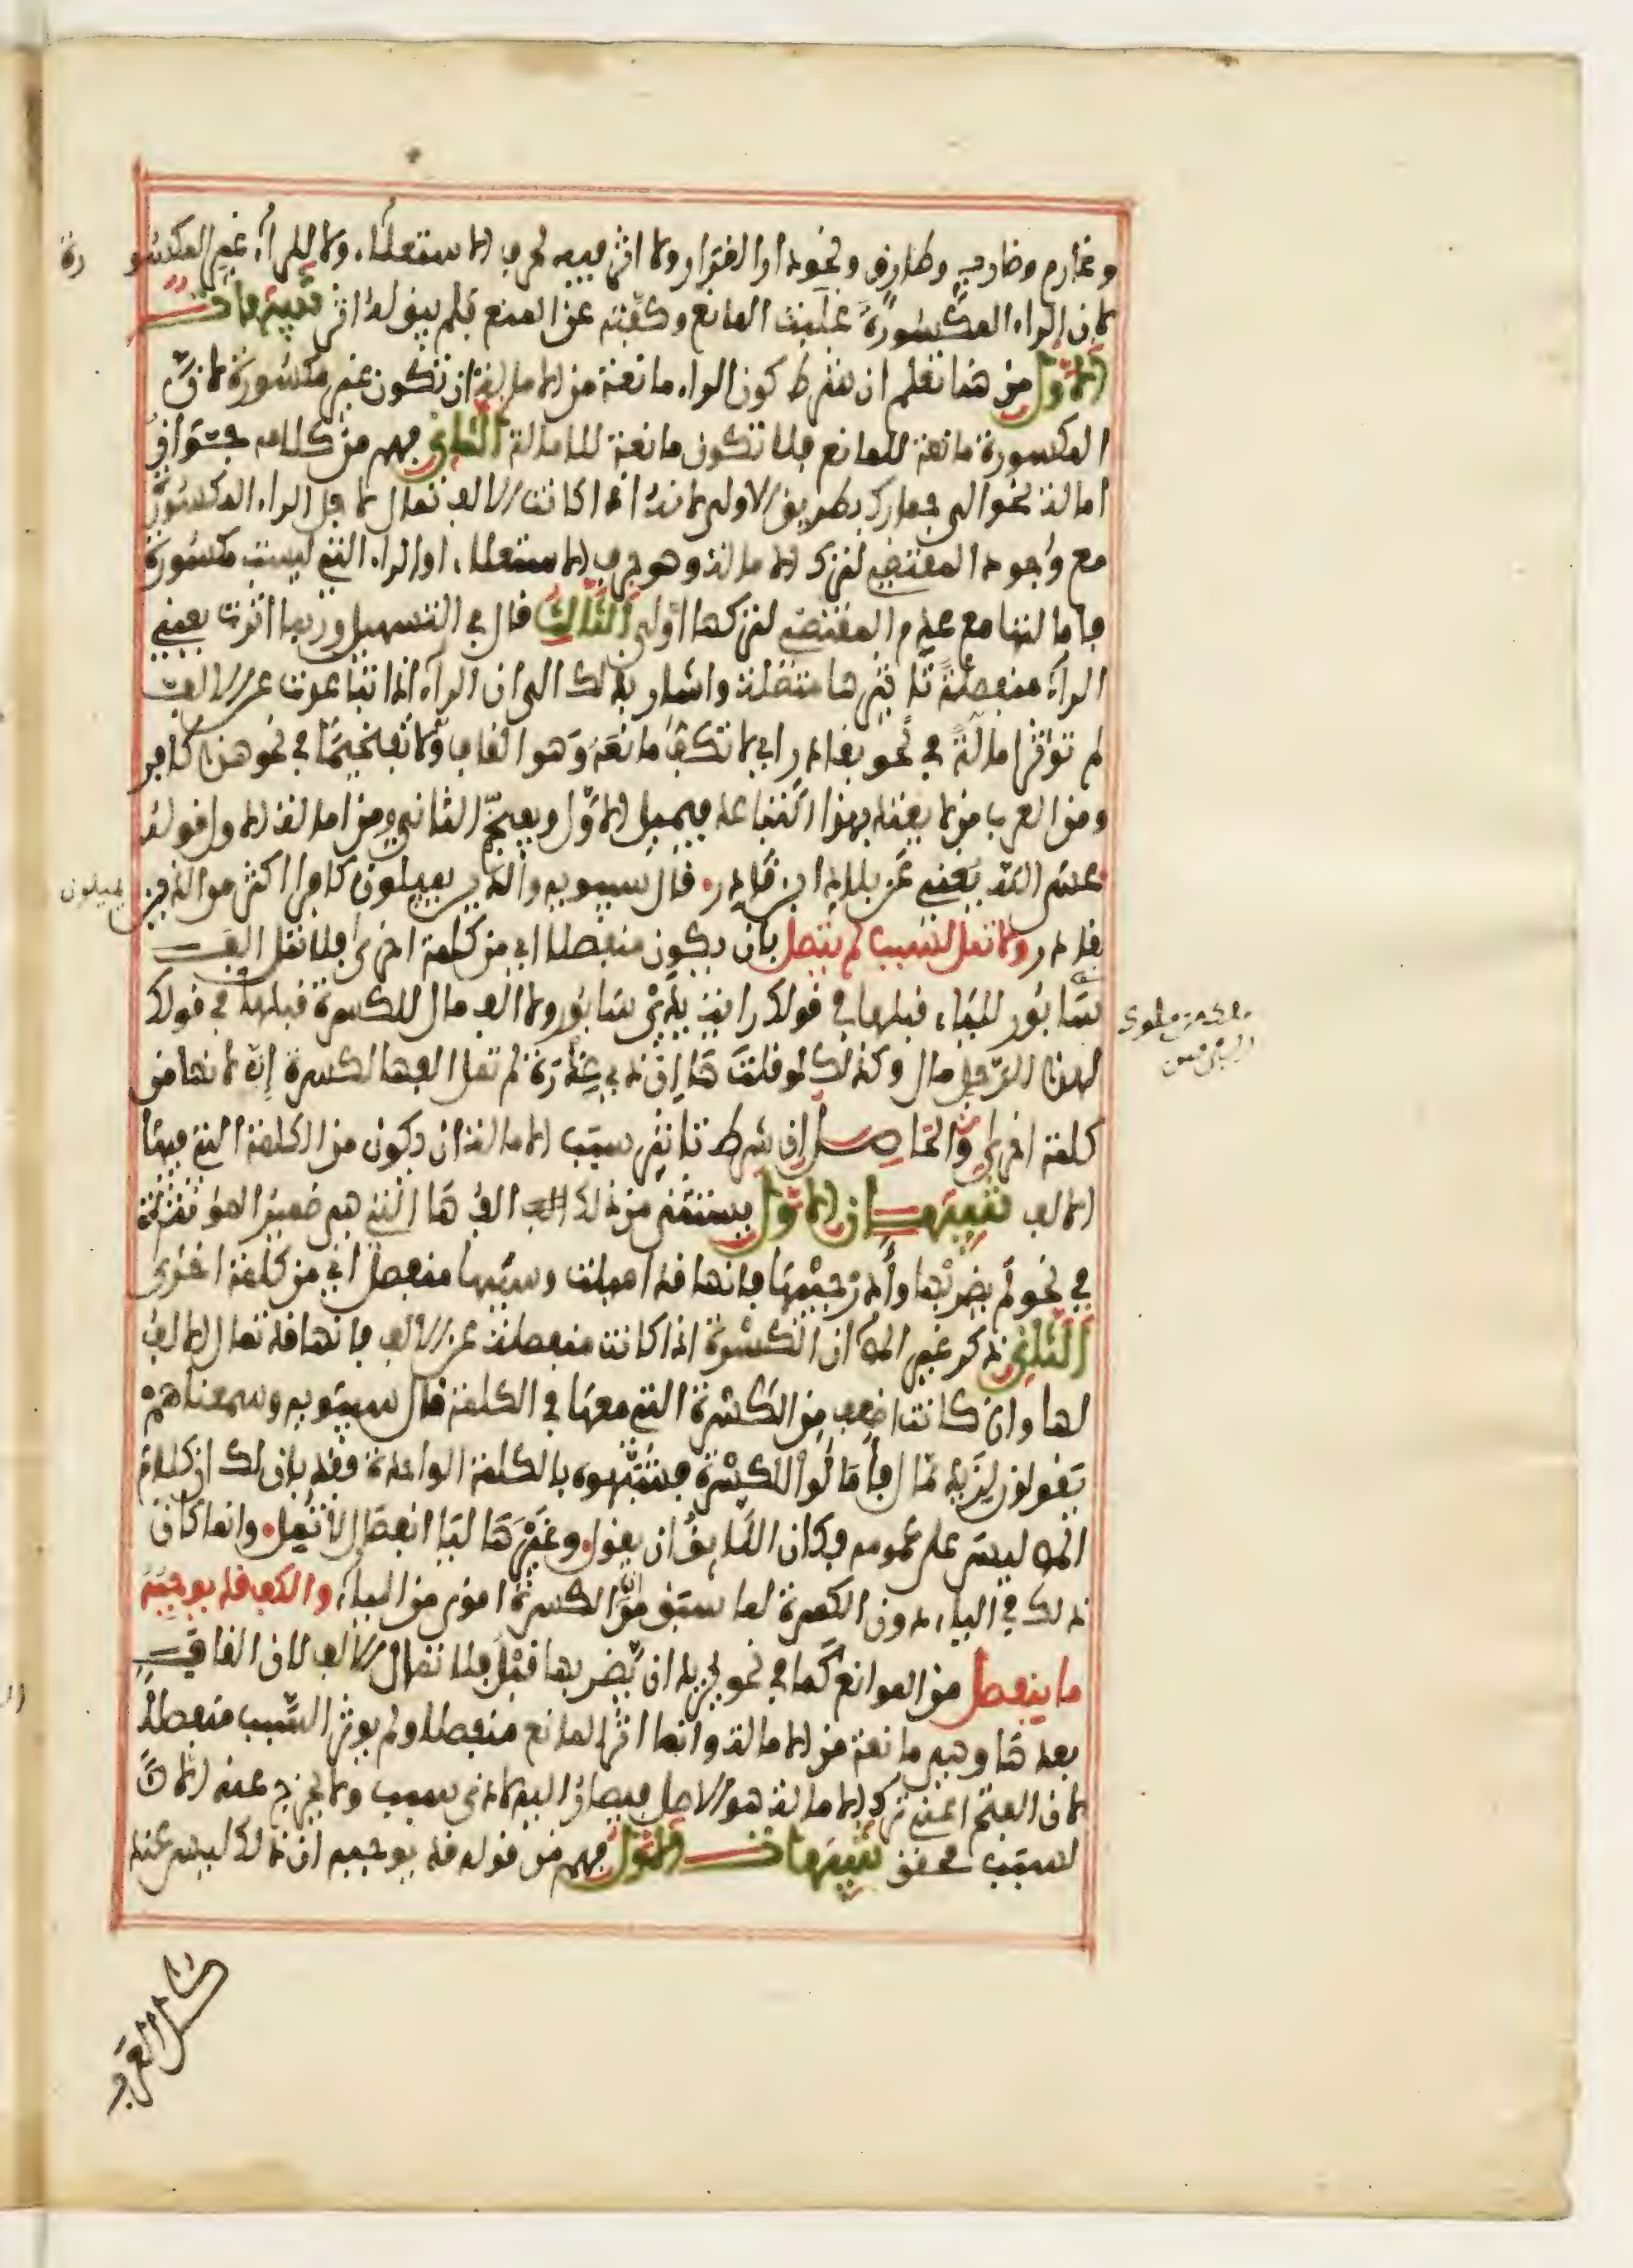 وغارم وضارب وطارق ونحو دار القرار ولا اثر فيه لحرف الاستعلاء ولا للراء غير المكسورة
لان الراء المكسورة غلبت المانع وكفته عن المنع فلم يبق له اثر تنبيهات
الاول من هنا تعلم ان شرط كون الراء مانعة من الامالة ان تكون غير مكسورة لان
المكسورة مانعة للمانع فلا تكون مانعة للامالة الثاني فهم من كلامه جواز
امالة نحو الى حمارك بطريق الاولى لانه اذا كانت الالف تمال لاجل الراء المكسورة
مع وجود المقتضي لترك الامالة وهو حرف الاستعلاء او الراء التي ليست مكسورة
فامالتها مع عدم المقتضي لتركها اولى الثالث قال في التسهيل وربما اثرت يعني
الراء منفصلة تاثيرها متصلة واشار بذلك الى ان الراء اذا تباعدت عن الالف
لم توثر امالة في نحو بقادر اي لا تكف مانعة وهو القاف ولا تفخيما في نحو هذا كافر
ومن العرب من لا يعتد بهذا التباعد فيميل الاول ويفخم الثاني ومن امالة الاول قوله
عسى الله يغني عن بلاد ابن قادر قال سيبويه والذين يميلون كافرا اكثر من الذين يميلون
بقادر ولا تمل لسبب لم يتصل بان يكون منفصلا اي من كلمة اخرى فلا تمل الف
سابور للياء قبلها في قولك رايت يدي سابور ولا الف مال للكسرة قبلها في قولك
لهذا الرجل مال وكذلك لو قلت ها ان ذي عذرة لم تمل الف ها لكسرة ان لانها من
كلمة اخرى والحاصل ان شرط تاثير سبب الامالة ان يكون من الكلمة التي فيها
الالف تنبيهان الاول يستثنى من ذلك الف ها التي هي ضمير المؤنثة
في نحو لم يضربها وادر جيبها فانها قد اميلت وسببها منفصل اي من كلمة اخرى
الثاني ذكر غير المص ان الكسرة اذا كانت منفصلة عن الالف فانها قد تمال الالف
لها وان كانت اضعف من الكسرة التي معها في الكلمة قال سيبويه وسمعناهم
يقولون لزيد مال فامالوا للكسرة فشبهوه بالكلمة الواحدة فقد بان لك ان كلام
المص ليس على عمومه فكان اللايق ان يقول وغيرها ليا انفصال لا تمل وانما كان
ذلك في الياء دون الكسرة لما سبق من ان الكسرة اقوى من الياء والكف قد يوجبه
ما ينفصل من الموانع كما في نحو يريد ان يضربها قبل فلا تمال الالف لان القاف
بعدها وهي مانعة من الامالة وانما اثر المانع منفصلا ولم يوثر السبب منفصلا
لان الفتح اعني ترك الامالة هو الاصل فيصار اليه لادنى سبب ولا يخرج عنه الا
لسبب محقق تنبيهات الاول فهم من قوله قد يوجبه ان ذلك ليس عند